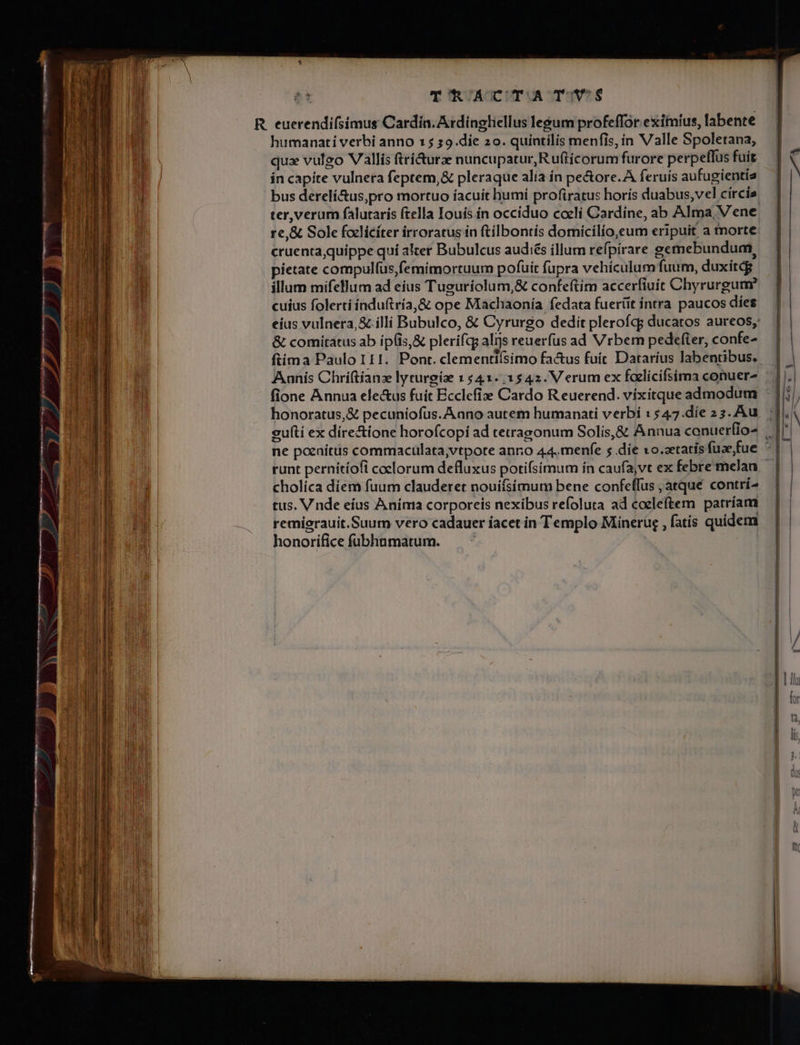 TRACTATVS
R euerendiſsimus Cardin. Ardinghellus legum profeſſor eximius, labente
humanati verbi anno 1539.die 20. quintilis menſis, in Valle Spoletana,
quæ vulgo Vallis ſtricturæ nuncupatur, Ruſticorum furore perpeſſus fuit
in capite vulnera ſeptem, & pleraque alia in pectore. A ſeruis aufugientis
bus derelictus, pro mortuo iacuit humi proſtratus horis duabus, vel circis
ter, verum ſalutaris ſtella Iouis in occiduo cœli Cardine, ab Alma Vene
re, & Sole fœliciter irroratus in ſtilbontis domicilio, eum eripuit a morte
cruenta, quippe qui alter Bubulcus audiẽs illum reſpirare gemebundum,
pietate compulſus, ſemimortuum poſuit ſupra vehiculum ſuum, duxitq;
illum miſellum ad eius Tuguriolum, & confeſtim accerſiuit Chyrurgum
cuius ſolerti induſtria, & ope Machaonia ſedata fuerũt intra paucos dies
eius vulnera, & illi Bubulco, & Cyrurgo dedit pleroſq; ducatos aureos,
& comitatus ab ipſis, & pleriſq; alijs reuerſus ad Vrbem pedeſter, confe-
ſtim a Paulo III. Pont. clementiſsimo factus fuit Datarius labentibus.
Annis Chriſtianæ lyturgiæ 1541. 1542. Verum ex fœliciſsima conuer-
ſione Annua electus fuit Eccleſiæ Cardo Reuerend. vixitque admodum
honoratus, & pecunioſus. Anno autem humanati verbi 1547.die 23. Au
guſti ex directione horoſcopi ad tetragonum Solis, & Annua conuerſio-
ne pœnitus commaculata, vtpote anno 44. menſe 5. die 10. ætatis ſuæ, fue
runt pernitioſi cœlorum defluxus potiſsimum in cauſa, vt ex febre melan
cholica diem ſuum clauderet nouiſsimum bene confeſſus, atque contri-
tus. Vnde eius Anima corporeis nexibus reſoluta ad cœleſtem patriam
remigrauit. Suum vero cadauer iacet in Templo Mineruę, ſatis quidem
honorifice ſubhumatum.